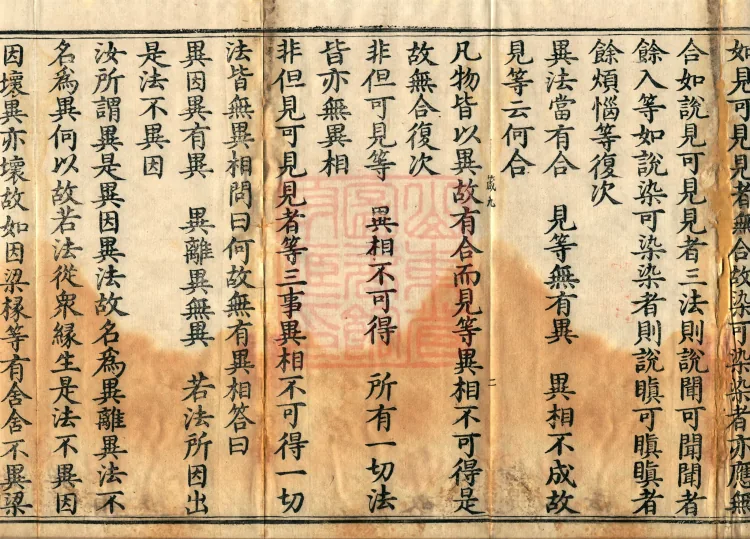 如見可見見者無合故染可染染者亦應無
合如說見可見見者三法則說聞可聞聞者
餘入等如說染可染染者則說瞋可瞋瞋者
餘煩惱等復次
異法當有合 見等無有異 異相不成故
見等云何合
凡物皆以異故有合而見等異相不可得是
故無合復次
非但可見等 異相不可得 所有一切法
皆亦無異相
非但見可見見者等三事異相不可得一切
法皆無異相問曰何故無有異相答曰
異因異有異 異離異無異 若法所因出
是法不異因
汝所謂異是異因異法故名為異離異法不
名為異何以故若法從眾緣生是法不異因
因壞異亦壞故如因梁椽等有舍舍不異梁
二